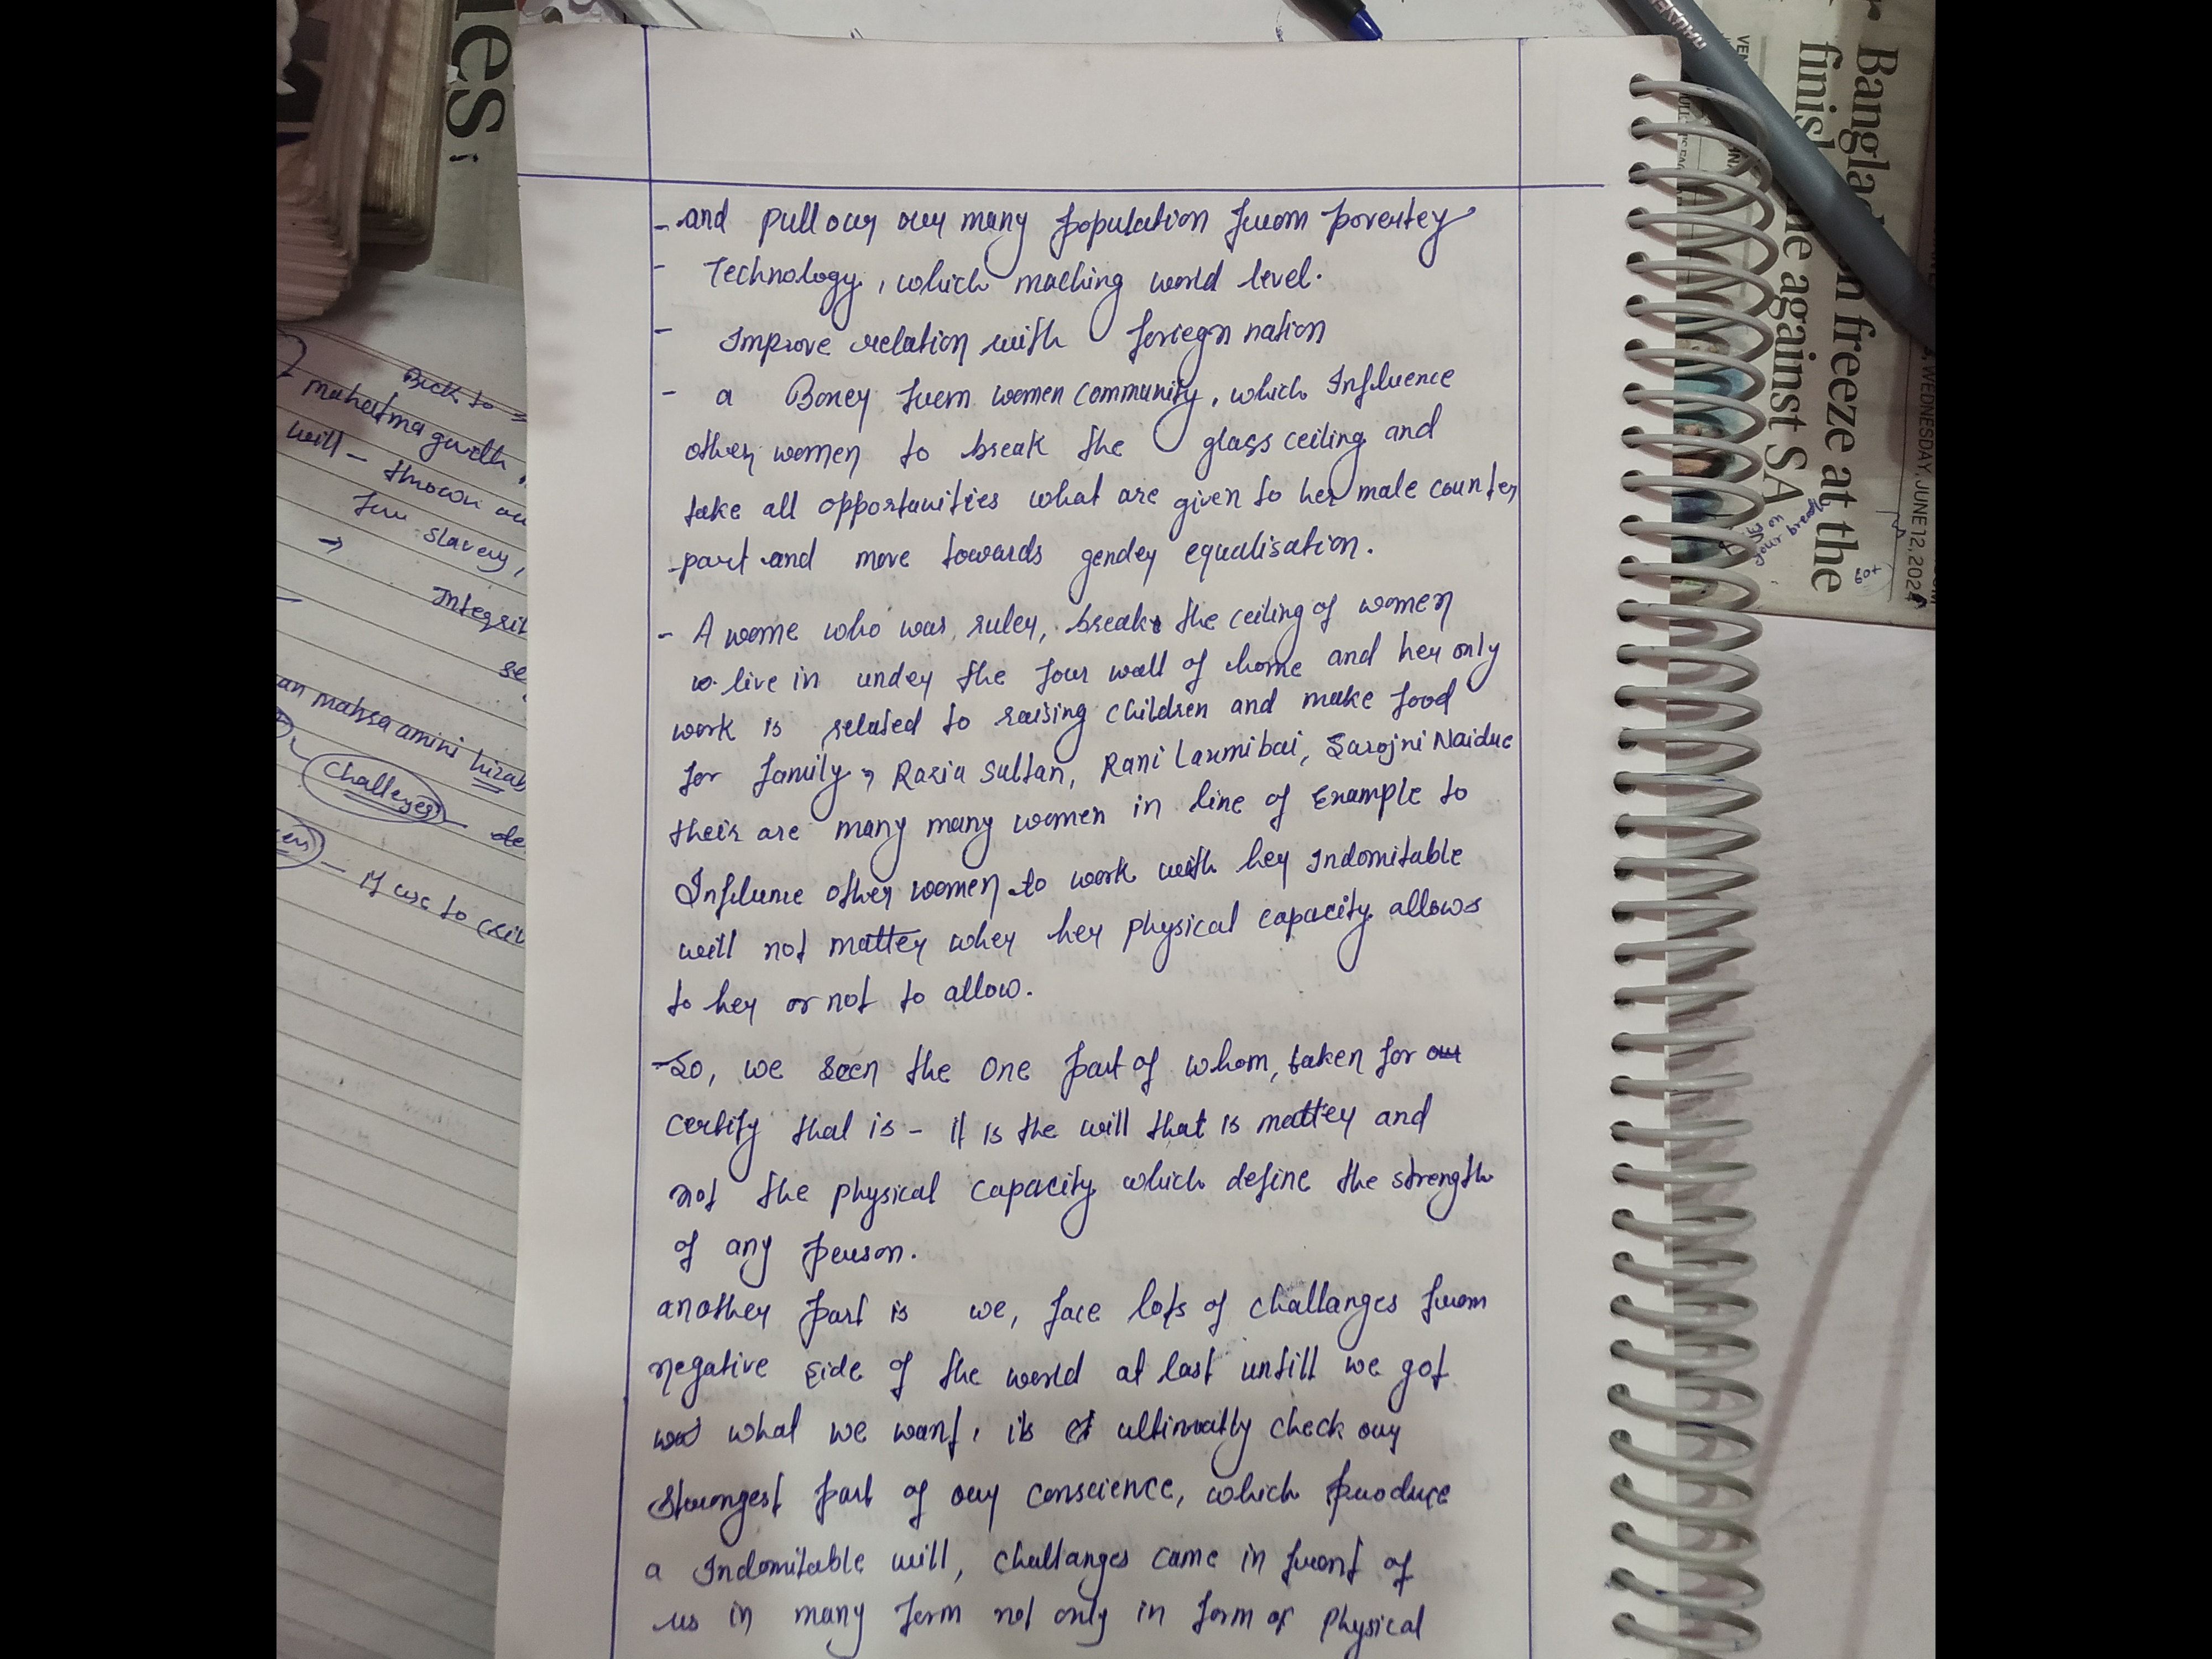 - and pull our our many population from povertey
- Technology, which maching world level.
- Improve relation with foriegn nation
- a Boney from women community, which Influence
other women to break the glass ceiling and
take all opportunities what are given to her male counter
-part and move towards gender equalisation.
- A wome who was ruler, break the ceiling of women
live in under the four wall of home and her only
work is related to raising children and make food
for family, Razia Sultan, Rani Laxmibai, Sarojni Naidue
their are many many women in line of Example to
Influnce other women to work with her Indomitable
will not matter wher her physical capacity allows
to her or not to allow.
- So, we seen the one part of whom, taken for
certify that is - it is the will that is matter and
not the physical capacity which define the strength
of any person.
another part is we, face lots of challanges from
negative side of the world at last untill we got
what we want, it's ultimatly check our
strongest part of our conscience, which produce
a Indomitable will, challanges came in front of
us in many form not only in form of physical
Back to
mahatma
will - thrown
slavery,
→ Integrit
se
an mahsa amini hizab
Challeges - de
- If use to
les
Banglad
freeze at the
finis
against SA
WEDNESDAY, JUNE 12, 2024
HAUSER
your
60+